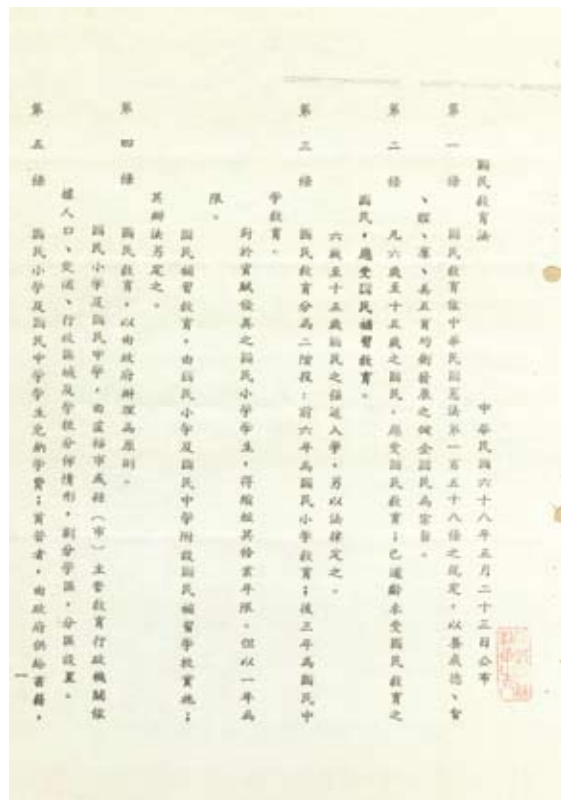 國民教育法
中華民國六十八年五月二十三日公布
第一條　國民教育依中華民國憲法第一百五十八條之規定，以養成德、智
、體、羣、美五育均衡發展之健全國民為宗旨。
第二條　凡六歲至十五歲之國民，應受國民教育；已逾齡未受國民教育之
國民，應受國民補習教育。
六歲至十五歲國民之強迫入學，另以法律定之。
第三條　國民教育分為二階段：前六年為國民小學教育；後三年為國民中
學教育。
對於資賦優異之國民小學學生，得縮短其修業年限。但以一年為
限。
國民補習教育，由國民小學及國民中學附設國民補習學校實施；
其辦法另定之。
第四條　國民教育，以由政府辦理為原則。
國民小學及國民中學，由直轄市或縣（市）主管教育行政機關依
據人口、交通、行政區域及學校分佈情形，劃分學區，分區設置。
第五條　國民小學及國民中學學生免納學費；貧苦者，由政府供給書籍，
一